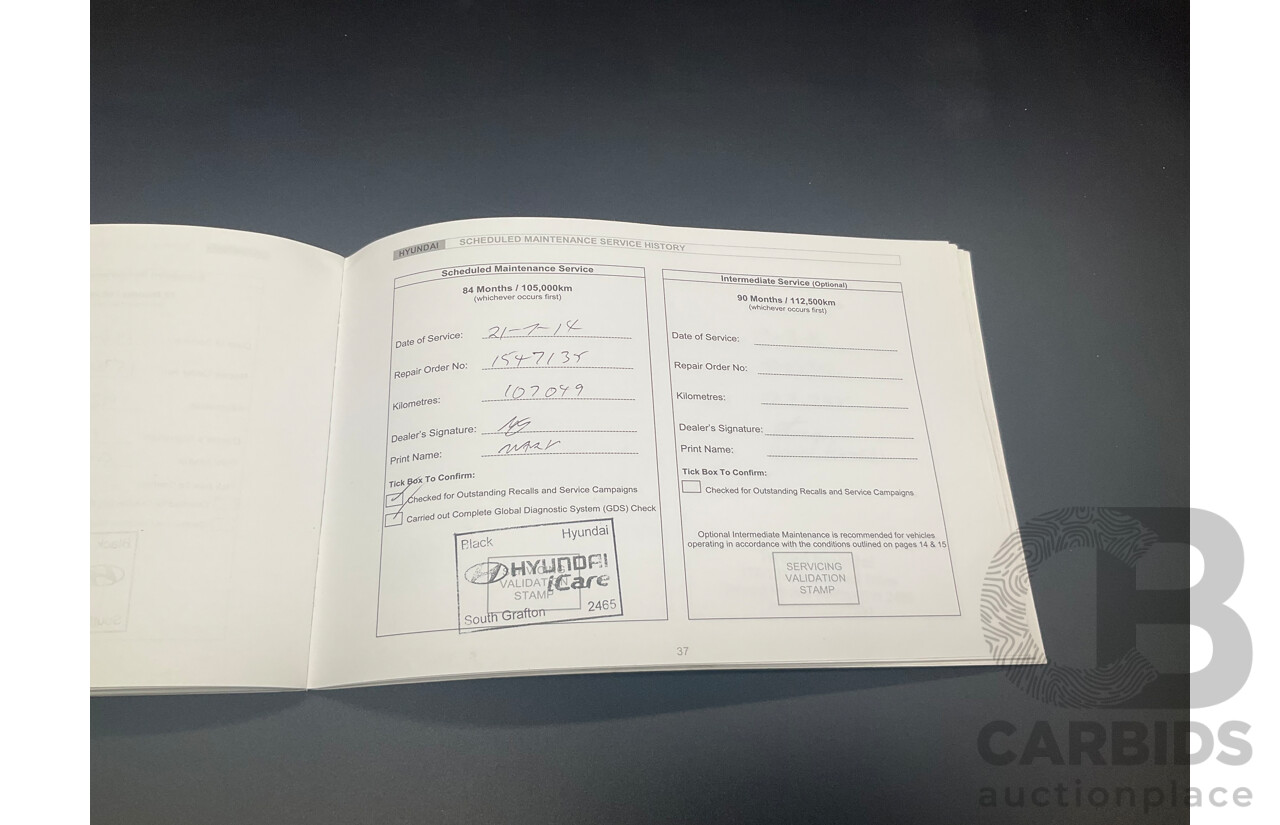 HYUNDAI SCHEDULED MAINTENANCE SERVICE HISTORY
Scheduled Maintenance Service
84 Months / 105,000km
(whichever occurs first)
Date of Service: 21-7-14
Repair Order No:
Kilometres: 107049
Dealer's Signature:
Print Name: MARK
Tick Box To Confirm:
Checked for Outstanding Recalls and Service Campaigns
Carried out Complete Global Diagnostic System (GDS) Check
Black Hyundai
HYUNDAI
iCare
SERVICING
VALIDATION
STAMP
South Grafton 2465
Intermediate Service (Optional)
90 Months / 112,500km
(whichever occurs first)
Date of Service:
Repair Order No:
Kilometres:
Dealer's Signature:
Print Name:
Tick Box To Confirm:
Checked for Outstanding Recalls and Service Campaigns
Optional Intermediate Maintenance is recommended for vehicles
operating in accordance with the conditions outlined on pages 14 & 15
SERVICING
VALIDATION
STAMP
37
CB
CARBIDS
auctionplace